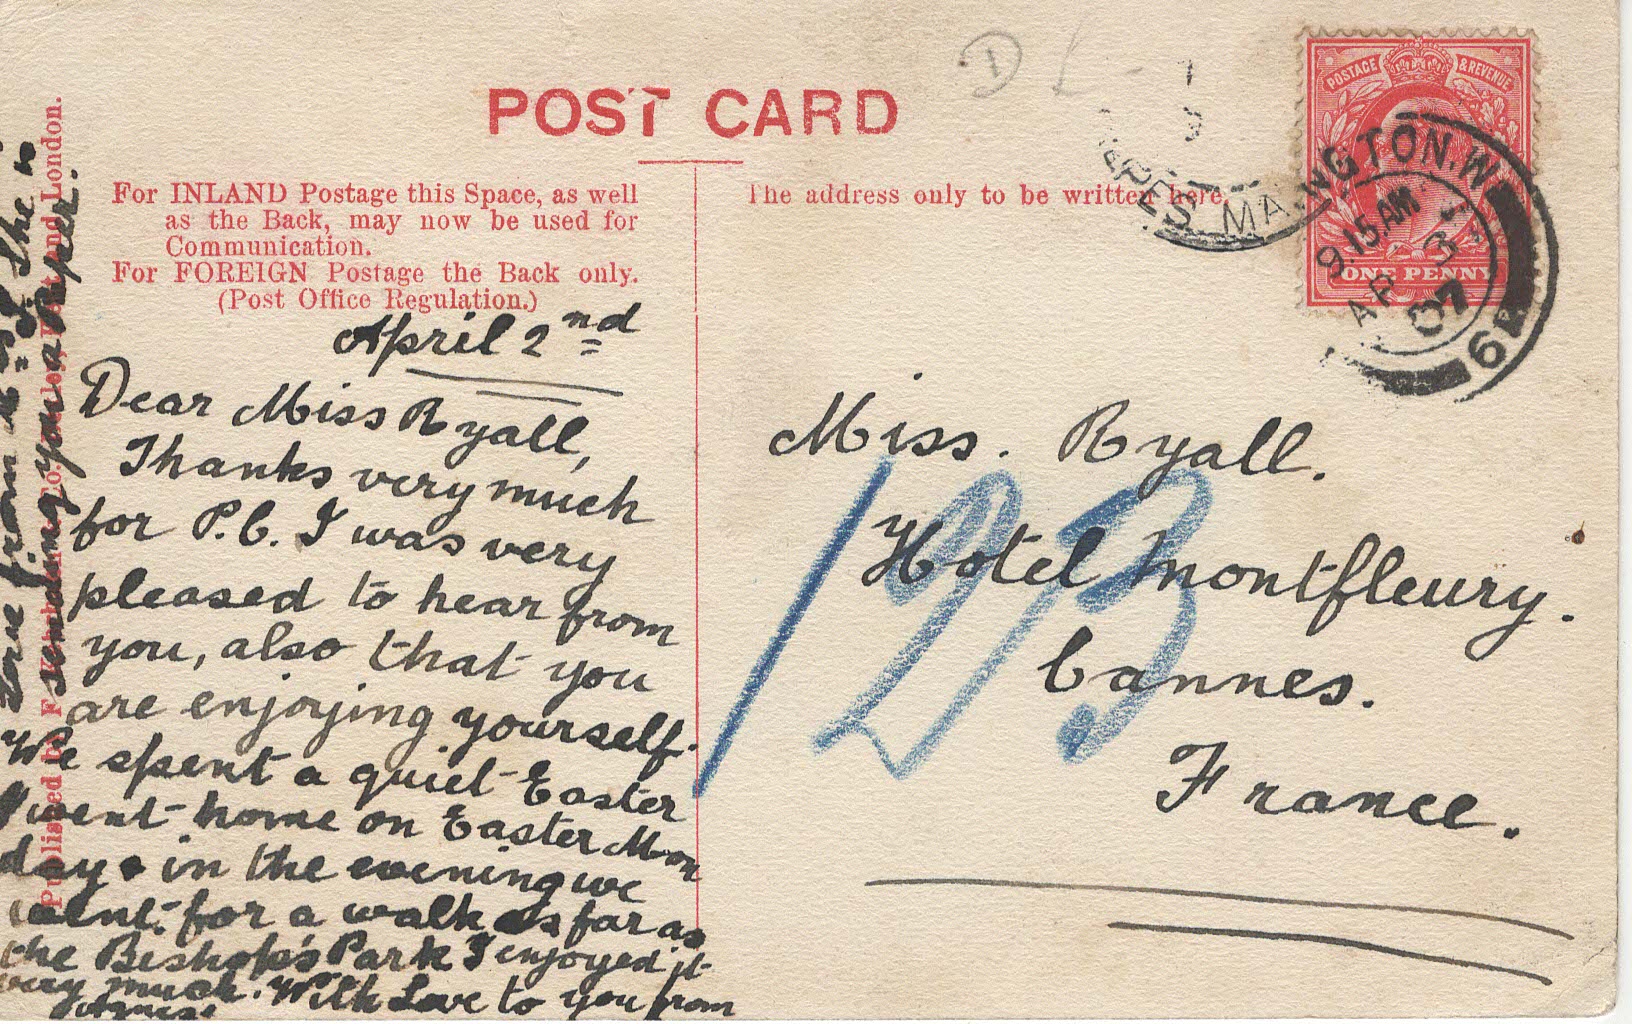 POST CARD
For INLAND Postage this Space, as well
as the Back, may now be used for
Communication.
For FOREIGN Postage the Back only.
(Post Office Regulation.)
The address only to be written here.
April 2nd
Dear Miss Ryall,
Thanks very much
for P.C. I was very
pleased to hear from
you, also that you
are enjoying yourself.
We spent a quiet Easter
I went home on Easter Mon
day in the evening we
went for a walk as far as
the Bishop's Park I enjoyed it
very much. With Love to you from
Agnes.
Love from
She is
sending you a Paper.
Published by
and London.
Miss. Ryall.
Hotel Montfleury.
Cannes.
France.
123
1
POSTAGE & REVENUE
ONE PENNY
NGTON. W
9.15 AM
AP 3
07
64